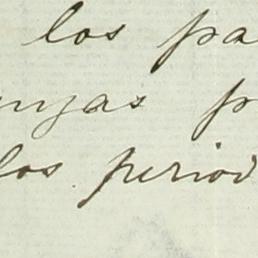 los pa
nzas p
los period